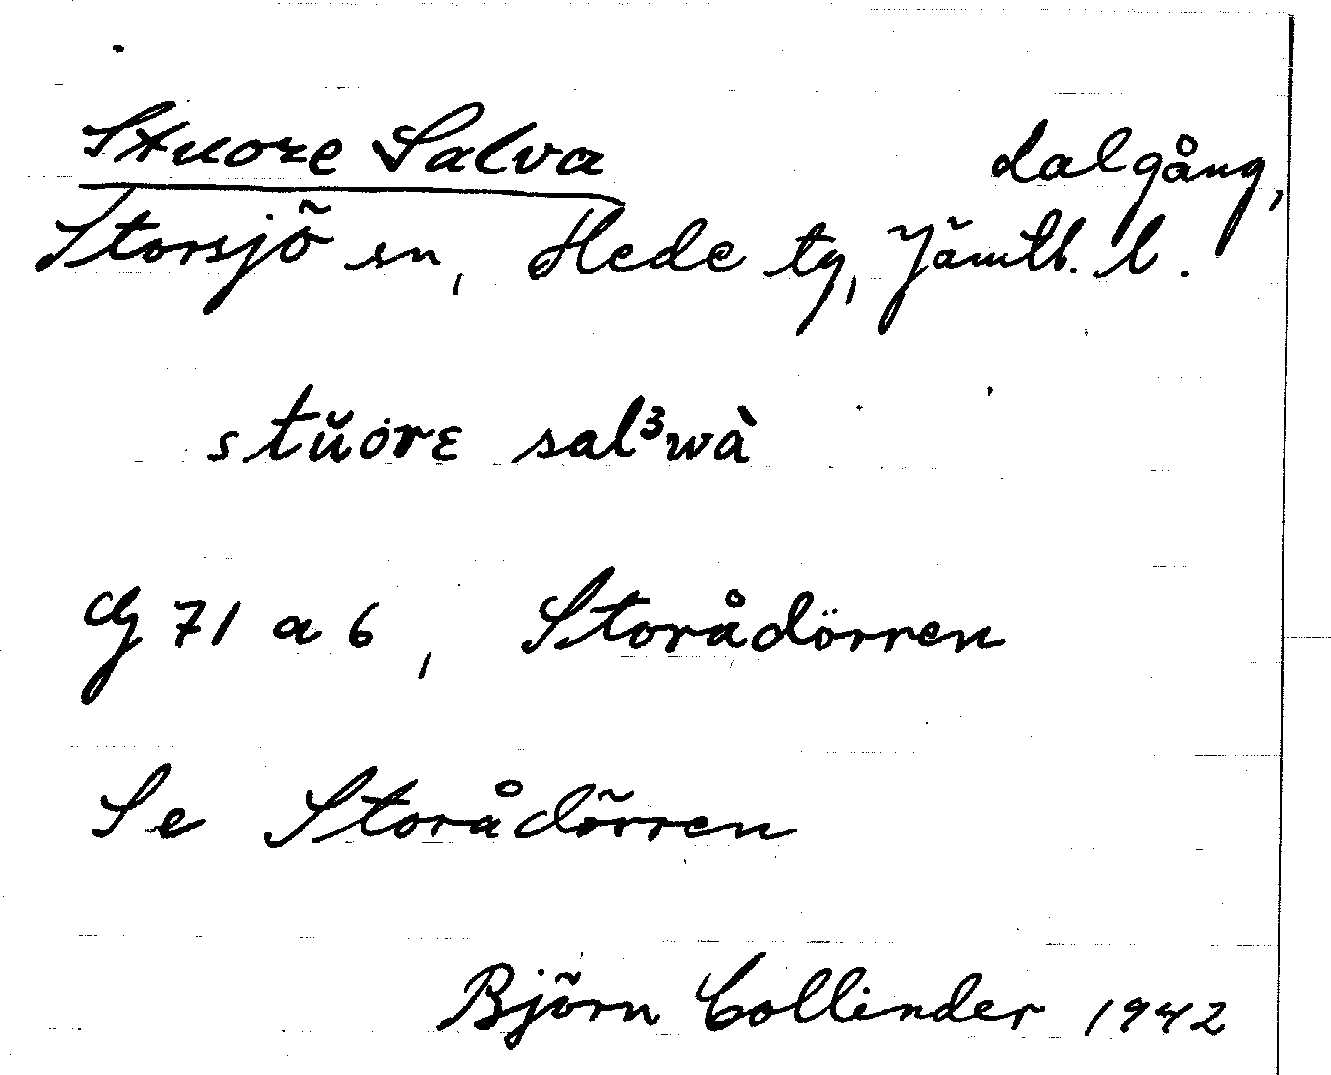 Stuore Salva dalgång,
Storsjö sn, Hede tg, Jämtl. l.
stŭȯrɛ sal³wà
Cg 71 a 6, Storådörren
Se Storådörren
Björn Collinder 1942